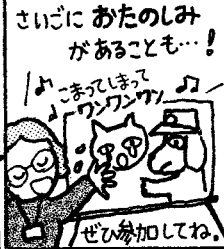 さいごに おたのしみ
があることも…!
こまってしまって
ワンワンワン
ぜひ参加してね。